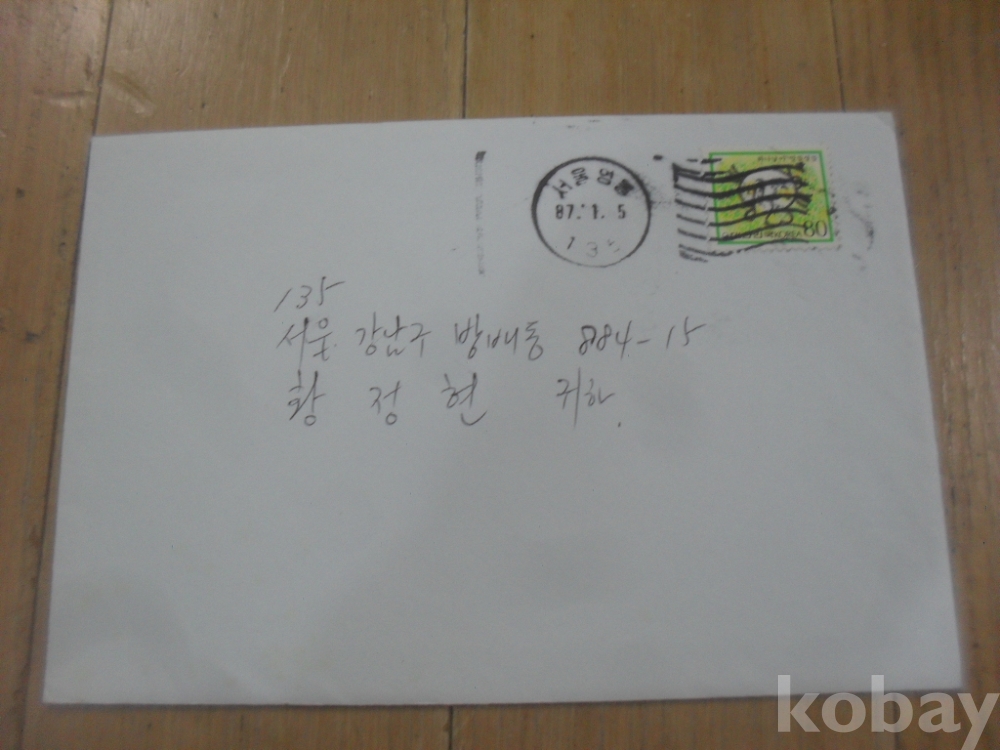 87.1.5
80
135
서울 강남구 방배동 884-15
황 정 현 귀하.
kobay